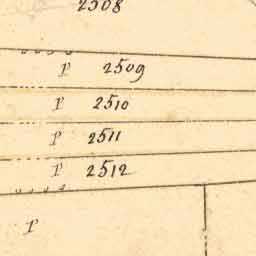 2508
P 2509
P 2510
P 2511
P 2512
P